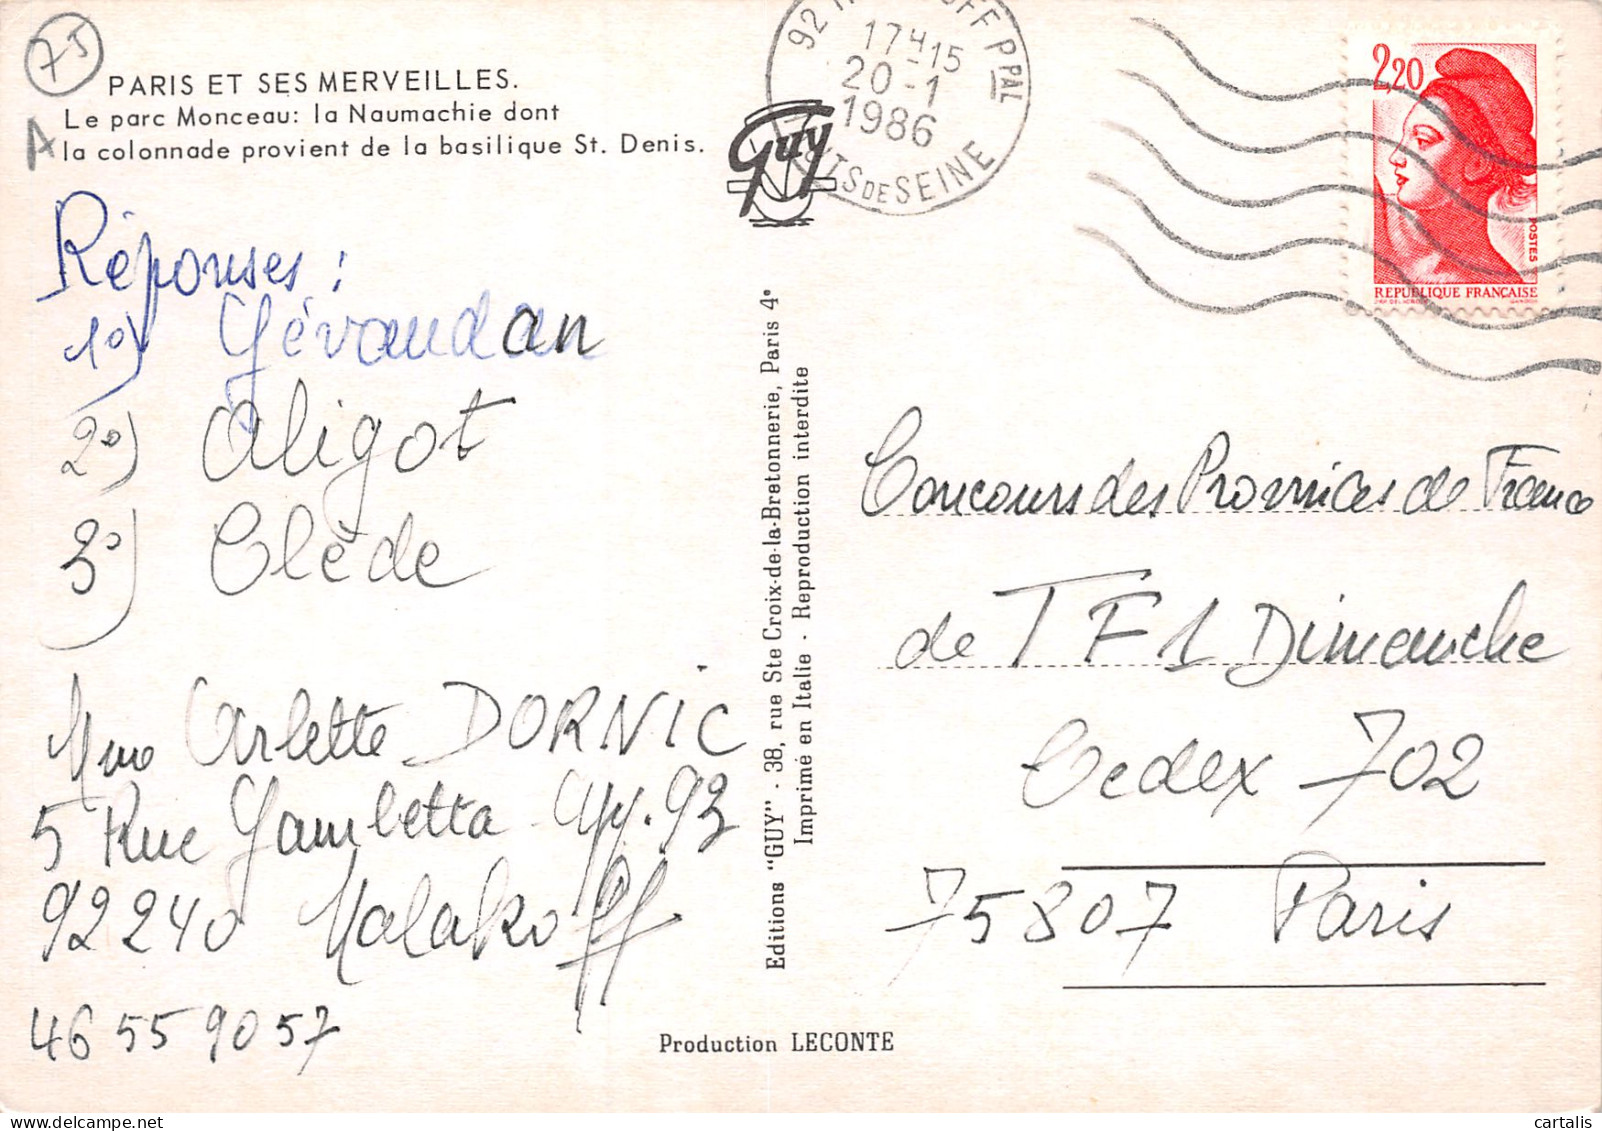 75
A
PARIS ET SES MERVEILLES.
Le parc Monceau: la Naumachie dont
la colonnade provient de la basilique St. Denis.
Guy
92 PPAL
17H15
20-1
1986
DE SEINE
2,20
POSTES
REPUBLIQUE FRANÇAISE
Réponses :
1°) Gévaudan
2°) Aligot
3°) Clède
Mme Arlette DORNIC
5 Rue Gambetta App. 93
92240 Malakoff
46 55 90 57
Editions "GUY" - 38, rue Ste Croix-de-la-Bretonnerie, Paris 4e
Imprimé en Italie - Reproduction interdite
Concours des Provinces de France
de TF1 Dimanche
Cedex 702
75807 Paris
Production LECONTE
cartalis www.delcampe.net